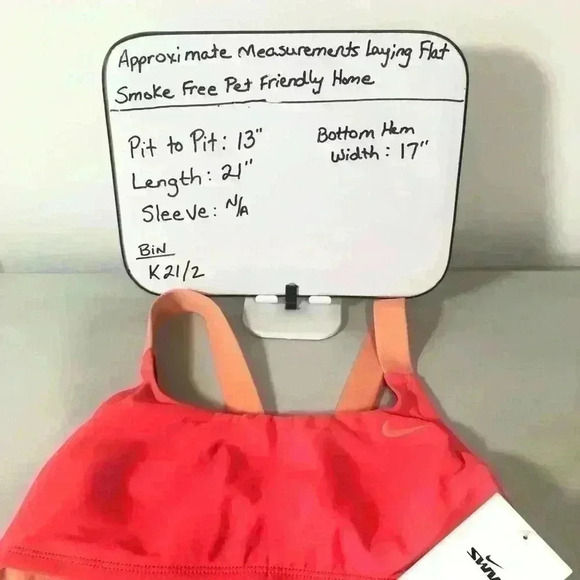 Approximate Measurements Laying Flat
Smoke Free Pet Friendly Home
Pit to Pit: 13"
Length: 21"
Sleeve: N/A
Bottom Hem
Width: 17"
BiN
K21/2